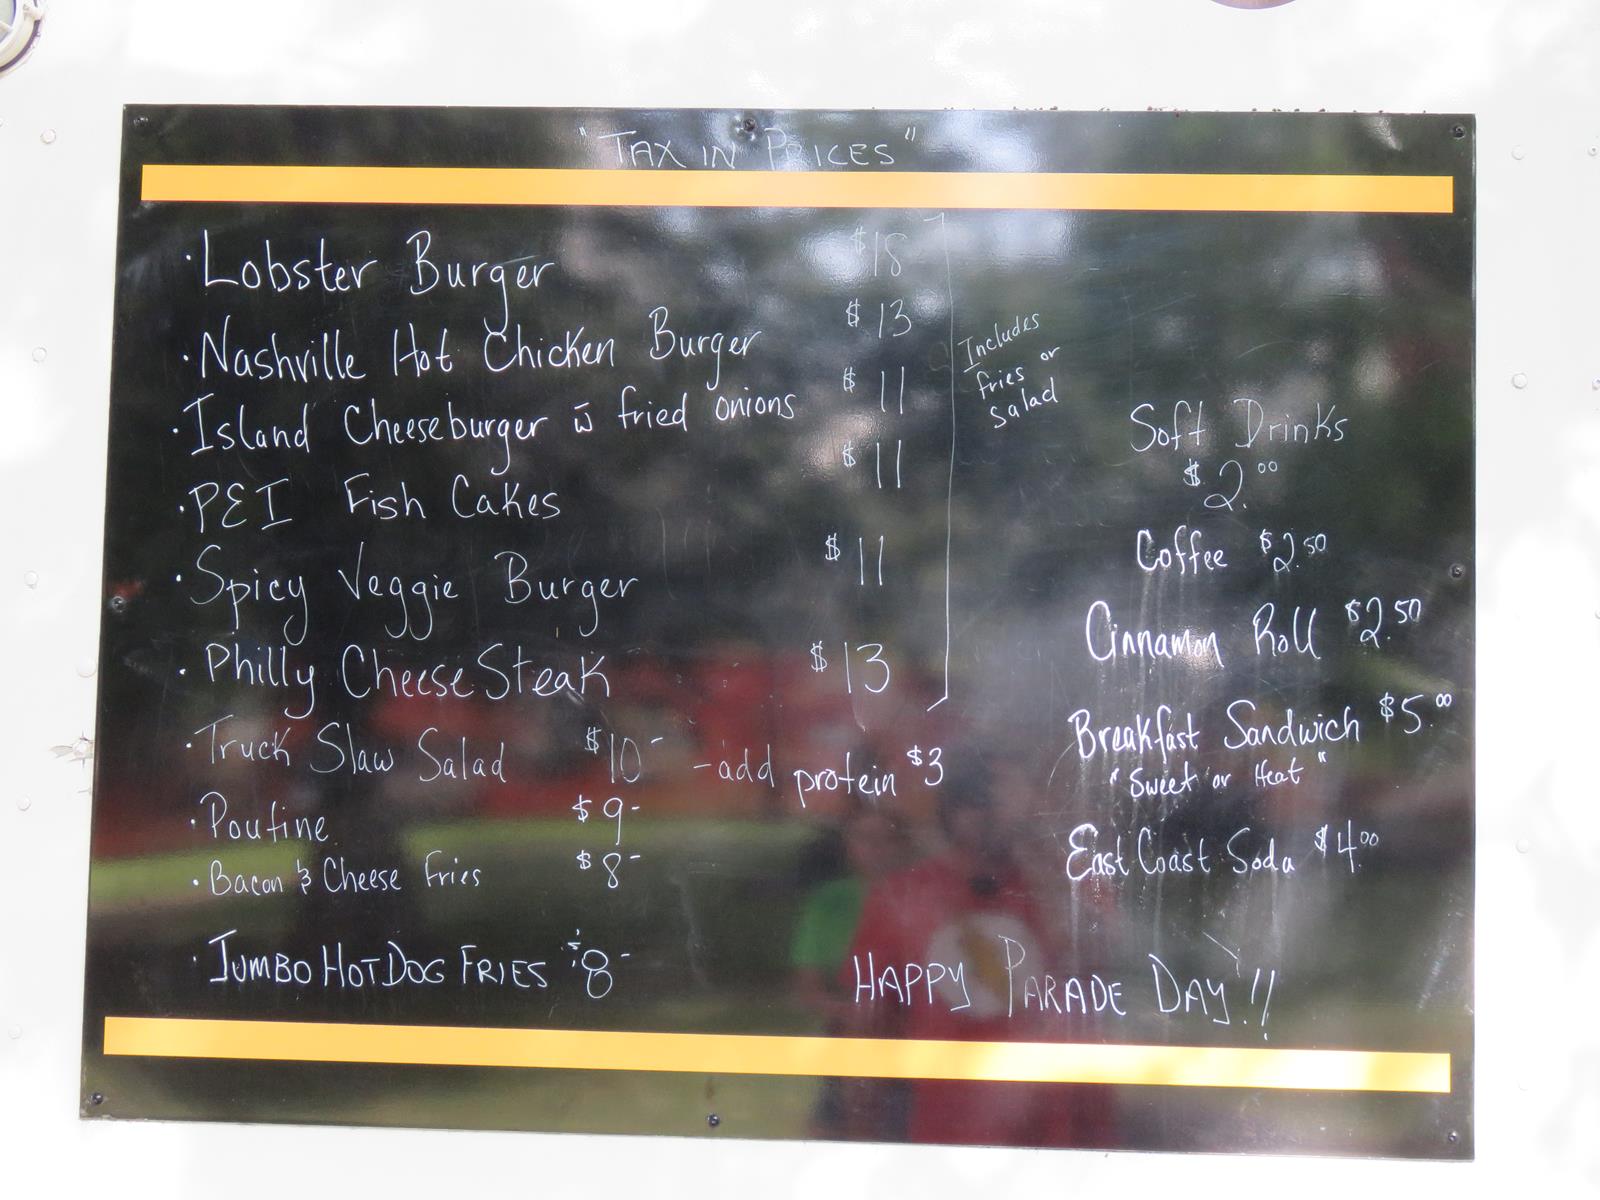 "TAX IN PRICES"
· Lobster Burger $18
· Nashville Hot Chicken Burger $13
· Island Cheeseburger w̄ fried onions $11
· PEI Fish Cakes $11
· Spicy Veggie Burger $11
· Philly Cheese Steak $13
Includes
fries or
Salad
· Truck Slaw Salad $10- -add protein $3
· Poutine $9-
· Bacon & Cheese Fries $8-
· JUMBO HOT DOG FRIES $8-
Soft Drinks
$2.00
Coffee $2.50
Cinnamon Roll $2.50
Breakfast Sandwich $5.00
"Sweet or Heat"
East Coast Soda $4.00
HAPPY PARADE DAY!!